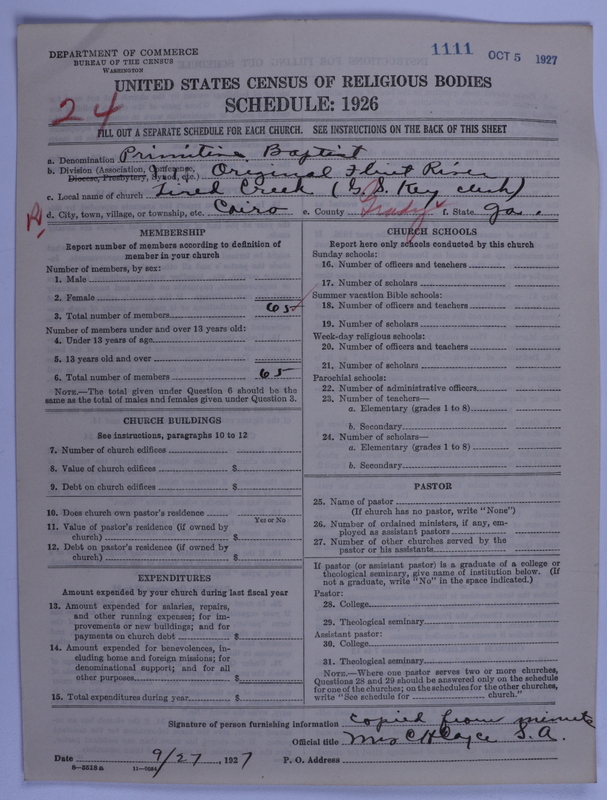 DEPARTMENT OF COMMERCE
BUREAU OF THE CENSUS
WASHINGTON
1111 OCT 5 1927
UNITED STATES CENSUS OF RELIGIOUS BODIES
SCHEDULE: 1926
24
FILL OUT A SEPARATE SCHEDULE FOR EACH CHURCH. SEE INSTRUCTIONS ON THE BACK OF THIS SHEET
a. Denomination Primitive Baptist
b. Division (Association, Conference, Diocese, Presbytery, Synod, etc.) Original Flint River
c. Local name of church Tired Creek (G. S. Key clerk)
d. City, town, village, or township, etc. Cairo e. County Grady f. State Ga.
MEMBERSHIP
Report number of members according to definition of
member in your church
Number of members, by sex:
1. Male
2. Female
3. Total number of members 65
Number of members under and over 13 years old:
4. Under 13 years of age
5. 13 years old and over
6. Total number of members 65
NOTE.—The total given under Question 6 should be the
same as the total of males and females given under Question 3.
CHURCH BUILDINGS
See instructions, paragraphs 10 to 12
7. Number of church edifices
8. Value of church edifices $
9. Debt on church edifices $
10. Does church own pastor's residence
Yes or No
11. Value of pastor's residence (if owned by
church) $
12. Debt on pastor's residence (if owned by
church) $
EXPENDITURES
Amount expended by your church during last fiscal year
13. Amount expended for salaries, repairs,
and other running expenses; for im-
provements or new buildings; and for
payments on church debt $
14. Amount expended for benevolences, in-
cluding home and foreign missions; for
denominational support; and for all
other purposes $
15. Total expenditures during year $
CHURCH SCHOOLS
Report here only schools conducted by this church
Sunday schools:
16. Number of officers and teachers
17. Number of scholars
Summer vacation Bible schools:
18. Number of officers and teachers
19. Number of scholars
Week-day religious schools:
20. Number of officers and teachers
21. Number of scholars
Parochial schools:
22. Number of administrative officers
23. Number of teachers—
a. Elementary (grades 1 to 8)
b. Secondary
24. Number of scholars—
a. Elementary (grades 1 to 8)
b. Secondary
PASTOR
25. Name of pastor
(If church has no pastor, write "None")
26. Number of ordained ministers, if any, em-
ployed as assistant pastors
27. Number of other churches served by the
pastor or his assistants
If pastor (or assistant pastor) is a graduate of a college or
theological seminary, give name of institution below. (If
not a graduate, write "No" in the space indicated.)
Pastor:
28. College
29. Theological seminary
Assistant pastor:
30. College
31. Theological seminary
NOTE.—Where one pastor serves two or more churches,
Questions 28 and 29 should be answered only on the schedule
for one of the churches; on the schedules for the other churches,
write "See schedule for church."
Signature of person furnishing information copied from minute
Official title Mrs C H Cayce S. A.
Date 9/27, 1927 P. O. Address
8—5518a